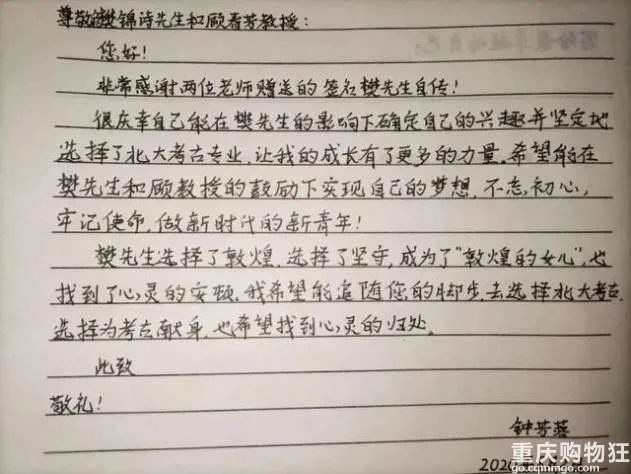 尊敬的樊锦诗先生和顾春芳教授:
您好!
非常感谢两位老师赠送的签名樊先生自传!
很庆幸自己能在樊先生的影响下确定自己的兴趣并坚定地
选择了北大考古专业,让我的成长有了更多的力量。希望能在
樊先生和顾教授的鼓励下实现自己的梦想,不忘初心,
牢记使命,做新时代的新青年!
樊先生选择了敦煌,选择了坚守,成为了"敦煌的女儿",也
找到了心灵的安顿。我希望能追随您的脚步去选择北大考古,
选择为考古献身,也希望找到心灵的归处。
此致
敬礼!
钟芳蓉
2020
重庆购物狂
go.cqmmgo.com